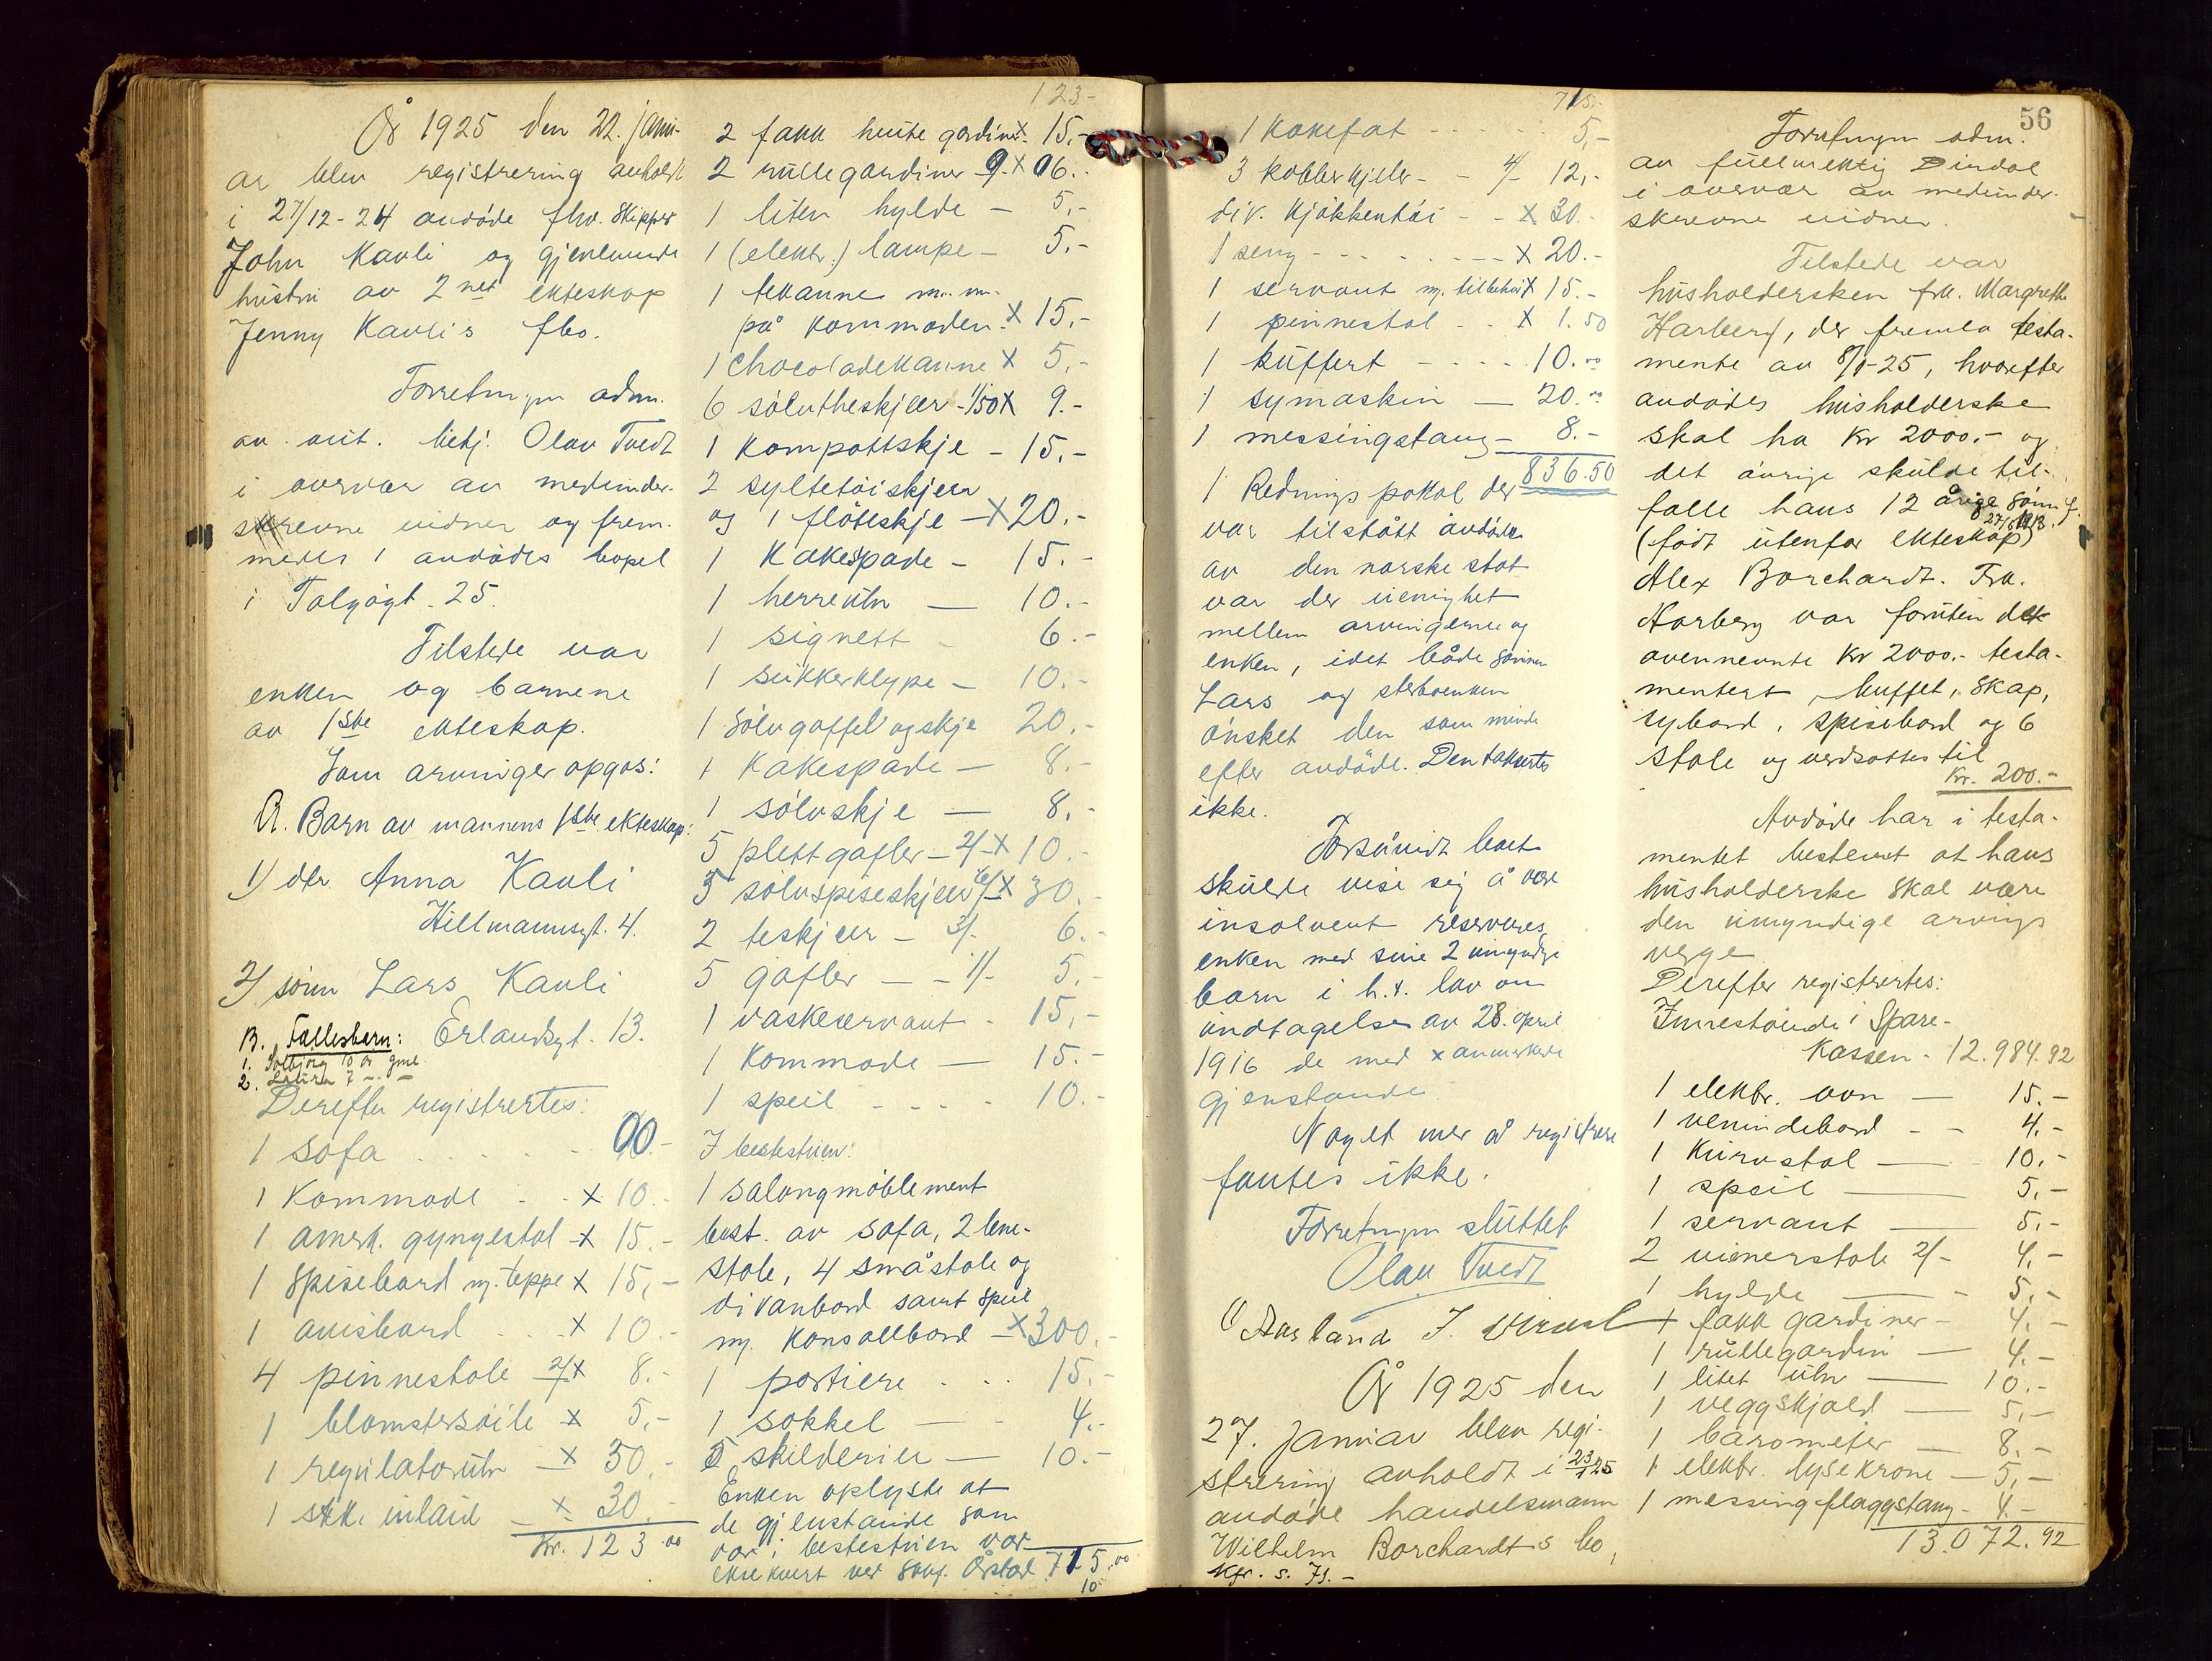 År 1925 den 22. janu-
ar blev registrering avholdt
i 27/12-24 avdöde fhv. Skipper
John Kavli og gjenlevende
hustru av 2net ekteskap
Jenny Kavli's fbo.
Forretningen adm.
av aut. betj. Olav Tvedt
i overvær av medunder-
skrevne vidner og frem-
medes i avdödes bopel
i Talgögt. 25.
Tilstede var
enken og barnene
av 1ste ekteskap.
Som arvinger opgas:
A. Barn av mannens 1ste ekteskap:
1) dtr Anna Kavli
Hillmannsgt. 4.
2) sönn Lars Kavli
Erlandsgt. 13.
B. Fællesbarn:
1. Solbjörg 10 år gml
2. Laura 7 — " —
Derefter registrertes:
1 sofa . . . . . 00.-
1 Kommode - - x 10.-
1 amerk. gyngestol - x 15.-
1 spisebord m. teppe x 15,-
1 avisbord . . . x 10.-
4 pinnestole 2/- x 8.-
1 blomstersöile x 5.-
1 regulatorutr — x 30.-
1 stk. inlaid — x 30.-
Kr. 123.00
123-
2 fakk hvite gardiner x 15,-
2 rullegardiner 9.- x 06.-
1 liten hylde — 5.-
1 (elektr.) lampe — 5.-
1 tekanne m. m.
på kommoden. x 15,-
1 chocoladekanne x 5.-
6 sölvtheskjeer - 1/50 x 9.-
1 Kompottskje - 15.-
2 syltetöiskjeer
og 1 flöteskje — x 20.-
1 Kakespade - 15.-
1 herreutr — 10.-
1 signett - 6.-
1 sukkerklype - 10.-
1 Sölvgaffel og skje 20.-
1 Kakespade — 8.-
1 sölvskje — 8.-
5 plettgafler - 2/- x 10.-
5 sölvspiseskjeer 6/- x 30.-
2 teskjeer - 3/- 6.-
5 gafler — - 1/- 5.-
1 vaskeservant - 15,-
1 Kommode — 15.-
1 speil - - - - 10.-
I bestestuen:
1 salongmöblement
best. av sofa, 2 lene-
stole, 4 småstole og
divanbord samt speil
m. Konsollbord — x 300.-
1 portiere . . . 15.-
1 sokkel — - 4.-
5 skilderier — 10.-
Enken oplyste at
de gjenstande som
var i bestestuen var
eksekvert ved sakf. Östad 715.00
10
715.-
1 Kakefat - - - - 5,-
3 kobberkjeler - - 4/- 12,-
div. Kjökkentöi - - x 30.-
1 seng - - - - - x 20.-
1 servant m. tilbehör x 15.-
1 pinnestol - - x 1.50
1 kuffert - - - - 10.00
1 symaskin — 20.00
1 messingstang - 8.-
836.50
1 Rednings pokal der
var tilstått avdöde
av den norske stat
var der uenighet
mellem arvingerne og
enken, idet både sönnen
Lars og sterboenken
önsket den som minde
efter avdöde. Den taksertes
ikke.
Forsåvidt boet
skulde vise sig å være
insolvent reserveres
enken med sine 2 umyndige
barn i h.t. lov om
undtagelse av 28. april
1916 de med x anmerkede
gjenstande.
Noget mer å registrere
fantes ikke.
Forretningen sluttet
Olav Tvedt
O Aarland J.
År 1925 den
27. januar blev regi-
strering avholdt i 23/1 25
avdöde handelsmann
Wilhelm Borchardts bo,
Kfr. s. 71.-
56
Forretningen adm.
av fullmektig Dirdal
i overvær av medunder-
skrevne vidner.
Tilstede var
husholdersken frk. Margrethe
Harberg, der fremla testa-
mente av 8/1-25, hvorefter
avdödes husholderske
skal ha Kr 2000.- og
det övrige skulde til-
falle hans 12 årige sönn f. 27/5 1213.
(födt utenfor ekteskap)
Alex Borchardt. Frk.
Harberg var foruten det
ovennevnte Kr 2000.- testa-
mentert buffet, skap,
sybord, spisebord og 6
stole og verdsattes til
Kr. 200.-
Avdöde har i testa-
mentet bestemt at hans
husholderske skal være
den umyndige arvings
verge
Derefter registrertes:
Innestående i Spare-
kassen - 12.984.92
1 elektr. ovn — 15.-
1 venindebord - - 4.-
1 Kurvstol — 10.-
1 speil — 5.-
1 servant — 5.-
2 wienerstole 2/- 4.-
1 hylde — 5.-
1 fakk gardiner - 4.-
1 rullegardin — 4.-
1 litet utr — 10.-
1 veggskjold — 5.-
1 barometer — 8.-
1 elektr. lysekrone — 5.-
1 messing flaggstang - 4.-
13.072.92